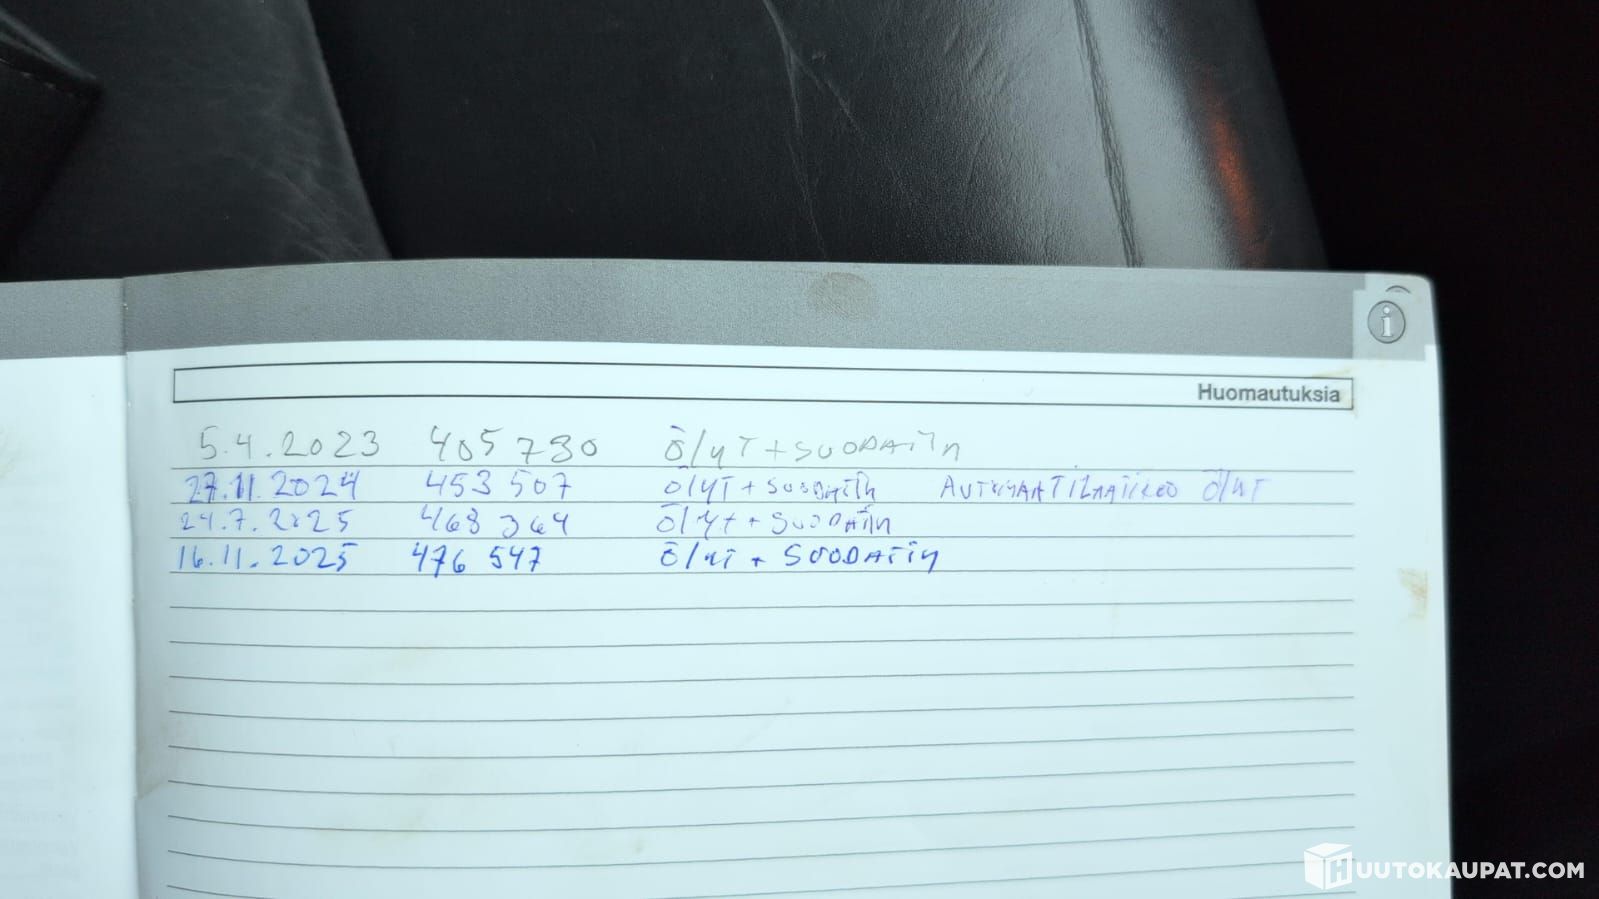 Huomautuksia
5.4.2023 405 780 ÖlyT + SUODATIN
27.11.2024 453 507 ÖlyT + SUODATIN AUTOMAATTILAATIKKO ÖlyT
24.7.2025 468 364 ÖlyT + SUODATIN
16.11.2025 476 547 ÖlyT + SUODATIN
HUUTOKAUPAT.COM